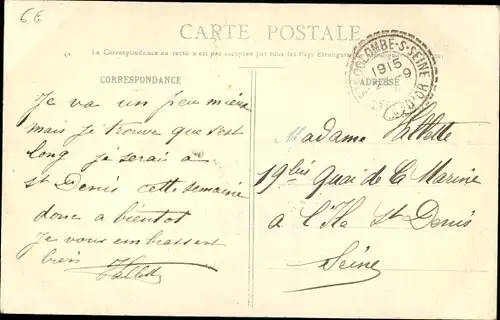 6€
CARTE POSTALE
La Correspondance au recto n'est pas acceptée par tous les Pays Étrangers
CORRESPONDANCE
ADRESSE
COLOMBE-S-SEINE
1915
9
D'OR
Je va un peu mieux
mais je trouve que s'est
long je serais a
St Denis cette semaine
donc a bientot
Je vous embrassent
bien
Madame
19 bis Quai de la Marine
a l'Ile St Denis
Seine